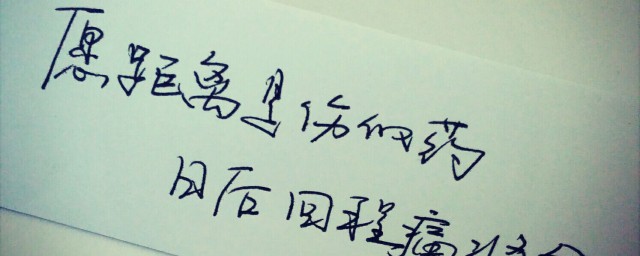 愿距离是伤的药
日后回程痛